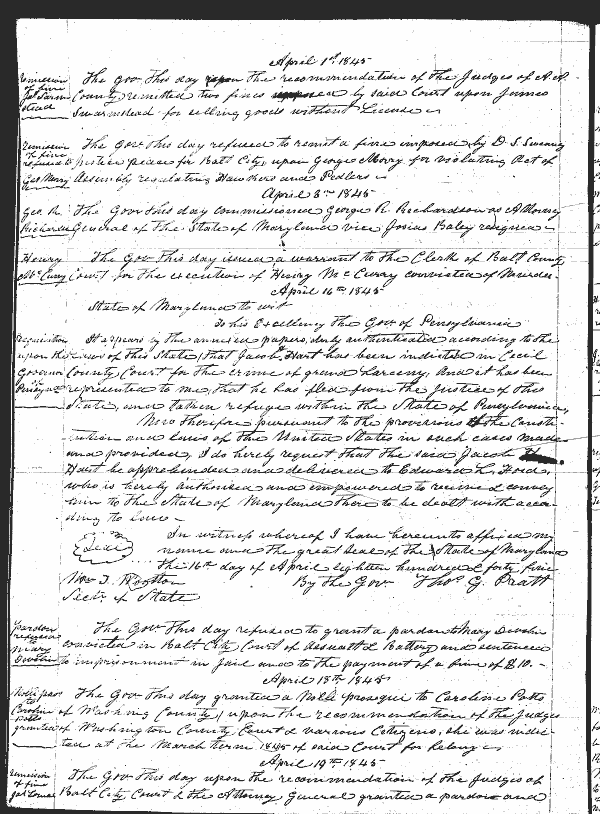 April 1st 1845
remission of fine
The Gov. this day upon the recommendation of the Judges of A. A.
County, remitted two fines imposed by said Court upon James
Swarmstead for selling goods without License
remission of fine refused to Geo Morry
The Gov. this day refused to remit a fine imposed by D. S. Sweany
Justice peace for Balt City, upon George Morry for violating Act of
Assembly regulating Hawkers and Pedlers
April 3d 1845
Geo. R. Richardson
The Gov this day commissioned George R. Richardson as Attorney
General of the State of Maryland vice Josias Baley resigned
Henry McCurry
The Gov. this day issued a warrant to the Clerk of Balt County
Court for the execution of Henry McCurry convicted of Murder
April 16th 1845
State of Maryland to wit
To his Excellency the Gov of Pensylvania
requisition upon the Governor of Pensyva
It appears by the annexed papers, duly authenticated according to the
Laws of this State, that Jacob Hart has been indicted in Cecil
County Court for the crime of grand Larceny. And it has been
represented to me, that he has fled from the Justice of this
State, and taken refuge within the State of Pensylvania,
Now therefore pursuant to the provisions of the Consti-
tution and laws of the United States in such cases made
and provided, I do hereby request that the said Jacob
Hart be apprehended and delivered to Edward L. Ford,
who is hereby authorised and empowered to receive & convey
him to the State of Maryland there to be dealt with accor-
ding to law
In witness whereof I have hereunto affixed my
Seal
name and the great Seal of the State of Maryland
the 16th day of April eighteen hundred & forty five
By the Gov Thos. G. Pratt
Secty. of State
pardon refused to Mary Devolin
The Gov. this day refused to grant a pardon to Mary Devolin
convicted in Balt City Court of Assault & Battery and sentenced
to imprisonment in Jail and to the payment of a fine of $10.
April 18th 1845
Nolle pros to Caroline Potts granted
The Gov this day granted a Nolle prosequi to Caroline Potts
of Washing County, upon the recommendation of the Judges
of Washington County Court & various Citizens, she was indic-
ted at the March term 1845 of said Court for felony
April 19th 1845
remission of fine
The Gov. this day upon the recommendation of the Judges of
Balt City Court & the Attorney General granted a pardon and